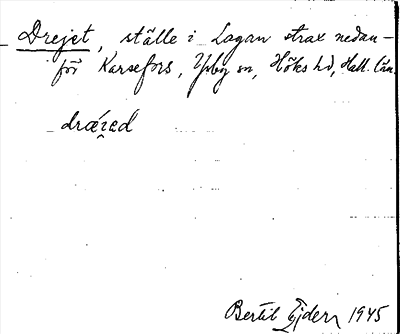 Drejet, ställe i Lagan strax nedan-
för Karsefors, Ysby sn, Höks hd, Hall. län.
Bertil Ejder 1945